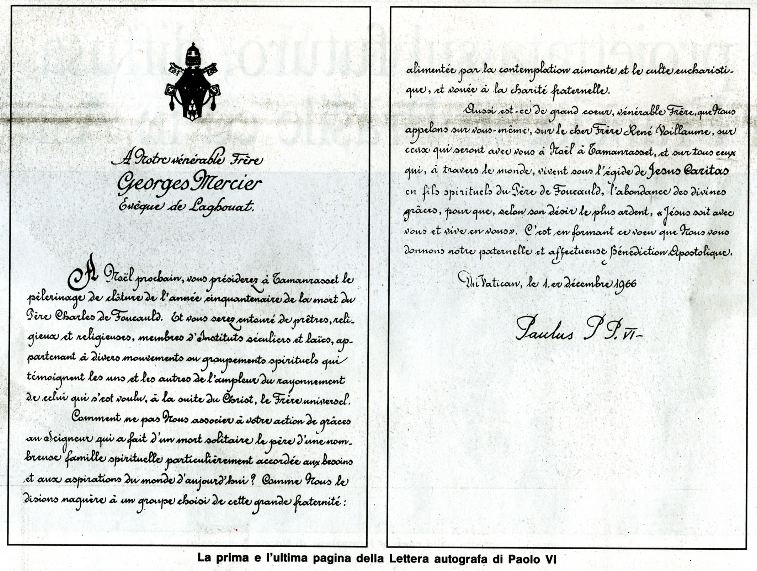 A Notre vénérable Frère
Georges Mercier
Evêque de Laghouat.
A Noël prochain, vous présiderez à Tamanrasset le
pèlerinage de clôture de l'année cinquantenaire de la mort du
Père Charles de Foucauld. Et vous serez entouré de prêtres, reli-
gieux et religieuses, membres d'Instituts séculiers et laïcs, ap-
partenant à divers mouvements ou groupements spirituels qui
témoignent les uns et les autres de l'ampleur du rayonnement
de celui qui s'est voulu, à la suite du Christ, le Frère universel.
Comment ne pas Nous associer à votre action de grâces
au Seigneur qui a fait d'un mort solitaire le père d'une nom-
breuse famille spirituelle particulièrement accordée aux besoins
et aux aspirations du monde d'aujourd'hui? Comme Nous le
disions naguère à un groupe choisi de cette grande fraternité:
alimentée par la contemplation aimante et le culte eucharisti-
que, et vouée à la charité fraternelle.
Aussi est-ce de grand coeur, vénérable Frère, que Nous
appelons sur vous-même, sur le cher Frère René Voillaume, sur
ceux qui seront avec vous à Noël à Tamanrasset, et sur tous ceux
qui, à travers le monde, vivent sous l'égide de Jesus Caritas
en fils spirituels du Père de Foucauld, l'abondance des divines
grâces, pour que, selon son désir le plus ardent, «Jésus soit avec
vous et vive en vous». C'est en formant ce voeu que Nous vous
donnons notre paternelle et affectueuse Bénédiction Apostolique.
Du Vatican, le 1.er décembre 1966
Paulus P P. VI-
La prima e l'ultima pagina della Lettera autografa di Paolo VI